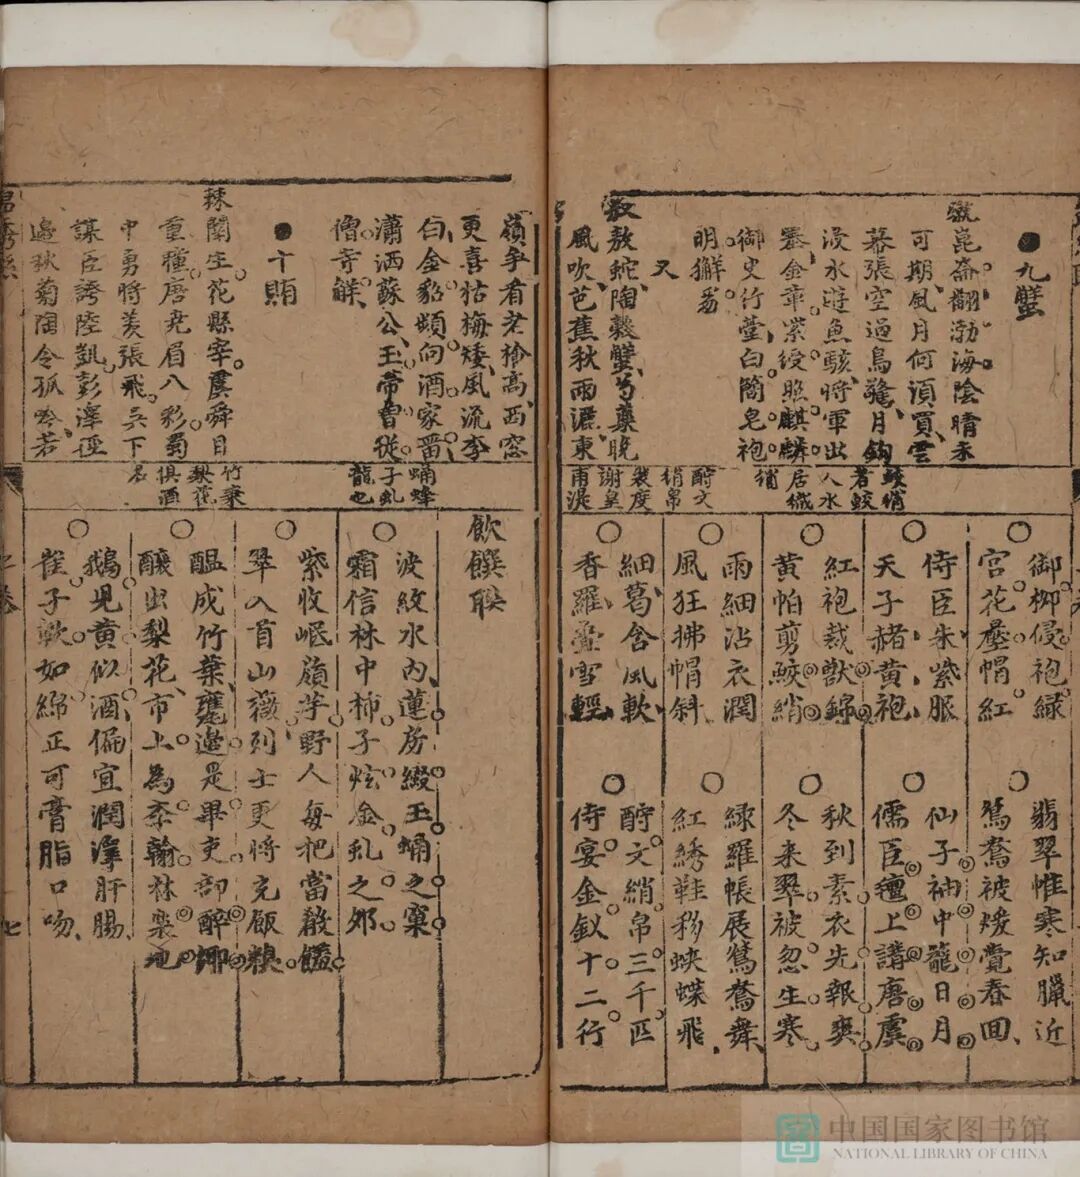 ●九蟹
崑崙翻渤海陰晴未
可期風月何須買雲
幕張空過鳥驚月鉤
浸水遊魚駭將軍出
塞金章紫綬照麒麟
御史行臺白簡皂袍
明獬豸
又
敖鮀陶穀蟹芍藥晚
風吹芭蕉秋雨灑東
鮫綃
若鮫
人水
居織
綃
酹文
綃帛
裴度
謝皇
甫湜
御柳侵袍綠
宮花壓帽紅
翡翠惟寒知臘近
鴛鴦被煖覺春回
侍臣朱紫服
天子赭黃袍
仙子袖中籠日月
儒臣壇上講唐虞
紅袍裁獸錦
黃帕剪鮫綃
秋到素衣先報爽
冬來翠被忽生寒
雨細沾衣潤
風狂拂帽斜
綠羅帳展鴛鴦舞
紅綉鞋移蛺蝶飛
細葛含風軟
香羅疊雪輕
酹文綃帛三千匹
侍宴金釵十二行
嶺爭看老檜高西窓
更喜枯梅矮風流李
白金貂頻向酒家畱
瀟洒蘇公玉帶曾從
僧寺解
●十賄
辣闌生花縣宰虞舜目
重瞳唐尭眉八彩蜀
中勇將羨張飛吴下
謀臣誇陸凱彭澤徑
邊秋菊陶令孤吟若
蛹蜂
子虬
龍也
竹葉
梨花
俱酒
名
飲饌聯
波紋水內蓮房綴玉蛹之窠
霜信林中柿子炫金虬之卵
紫收岷嶺芋野人每把當殽饈
翠入首山薇列士更將充飯糗
醞成竹葉甕邊是畢吏部醉鄉
釀出梨花市上為李翰林樂地
鵝兒黃似酒偏宜潤澤肝腸
雀子軟如綿正可膏脂口吻
七
中国国家图书馆
NATIONAL LIBRARY OF CHINA